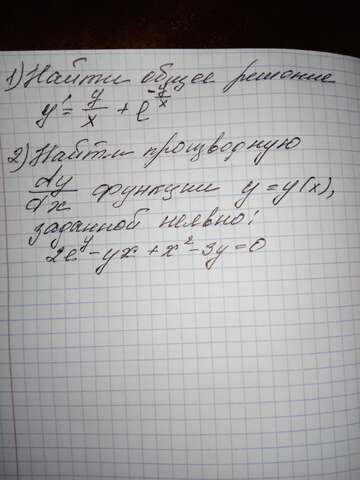 1) Найти общее решение
y' = y/x + e^(-y/x)
2) Найти производную
dy/dx функции y = y(x),
заданной неявно:
2e^y - yx + x^2 - 3y = 0